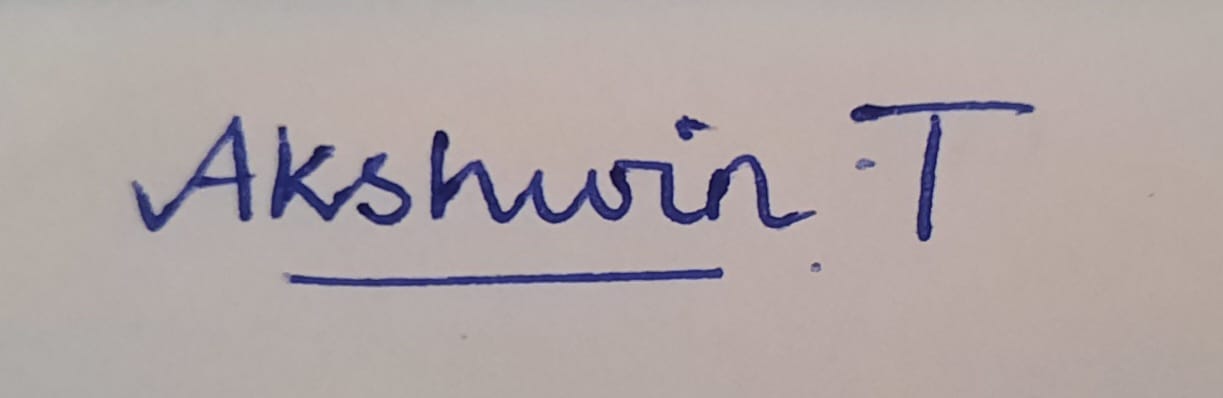 Akshwin. T